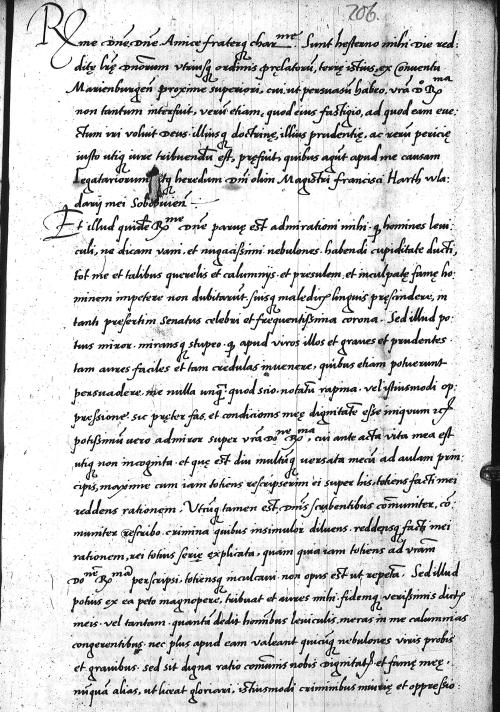 706.
R me dne, dne Amice frater char me. Sunt hesterno mihi die red:
ditę lrę dnorum utriusq ordinis prelatorū, terrę istius, ex Conventu
Marienburgen proxime superiori, cui, ut persuasū habeo, vra do R ma
non tantum interfuit, verū etiam, quod eius fastigio, ad quod eam eve:
ctum vri voluit deus, illiusq doctrinę, illius prudentię, ac reru pericię
iusto utiq iure tribuendū est, prefuit, quibus agūt apud me causam
Legatariorum itq heredum dni olim Magistri francisci Harth wla:
darij mei Sobouien
Et illud quidē R me dne parvę est admirationi mihi q homines levi:
culi, ne dicam vani, et nugacissimi nebulones, habendi cupiditate ducti,
tot me et talibus querelis et calumnijs, et presulem, et inculpatę famę ho:
minem impetere non dubitarūt, suisq maledicis linguis prescindere, in
tanti presertim Senatus celebri et frequentissima corona. Sed illud po:
tius miror, miransq stupeo, q apud viros illos et graves et prudentes
tam aures faciles et tam credulas invenere, quibus etiam potuerunt
persuadere, me nulla unq, quod scio, notatū rapina, vel istiusmodi op:
pressione, sic pręter fas, et condicionis meę dignitatē esse iniquum
potissimū vero admiror super vra do ne R ma, cui ante acta vita mea est
utiq non incognita, et quę est diu multūq versata mecū ad aulam prin:
cipis, maxime cum iam totiens rescripserim ei super his, totiens facti mei
reddens rationem. Utcūq tamen est, dnis scribentibus comuniter, cō:
muniter rescribo, crimina quibus insimulor diluens, reddensq facti mei
rationem, rei totius serię explicata, quam quoniam totiens ad vram
do ne R ma perscripsi, totiensq inculcavi, non opus est ut repetā. Sed illud
potius ex ea peto magnopere, tribuat et aures mihi, fidemq verissimis dictis
meis, vel tantam, quantā dedit hominibus leviculis, meras in me calumnias
congerentibus, nec plus apud eam valeant quicūq nebulones viris probis
et gravibus, sed sit digna ratio comunis nobis dignitatis et famę meę,
nūqua alias, ut liceat gloriari, istiusmodi criminibus iniurię et oppressio: